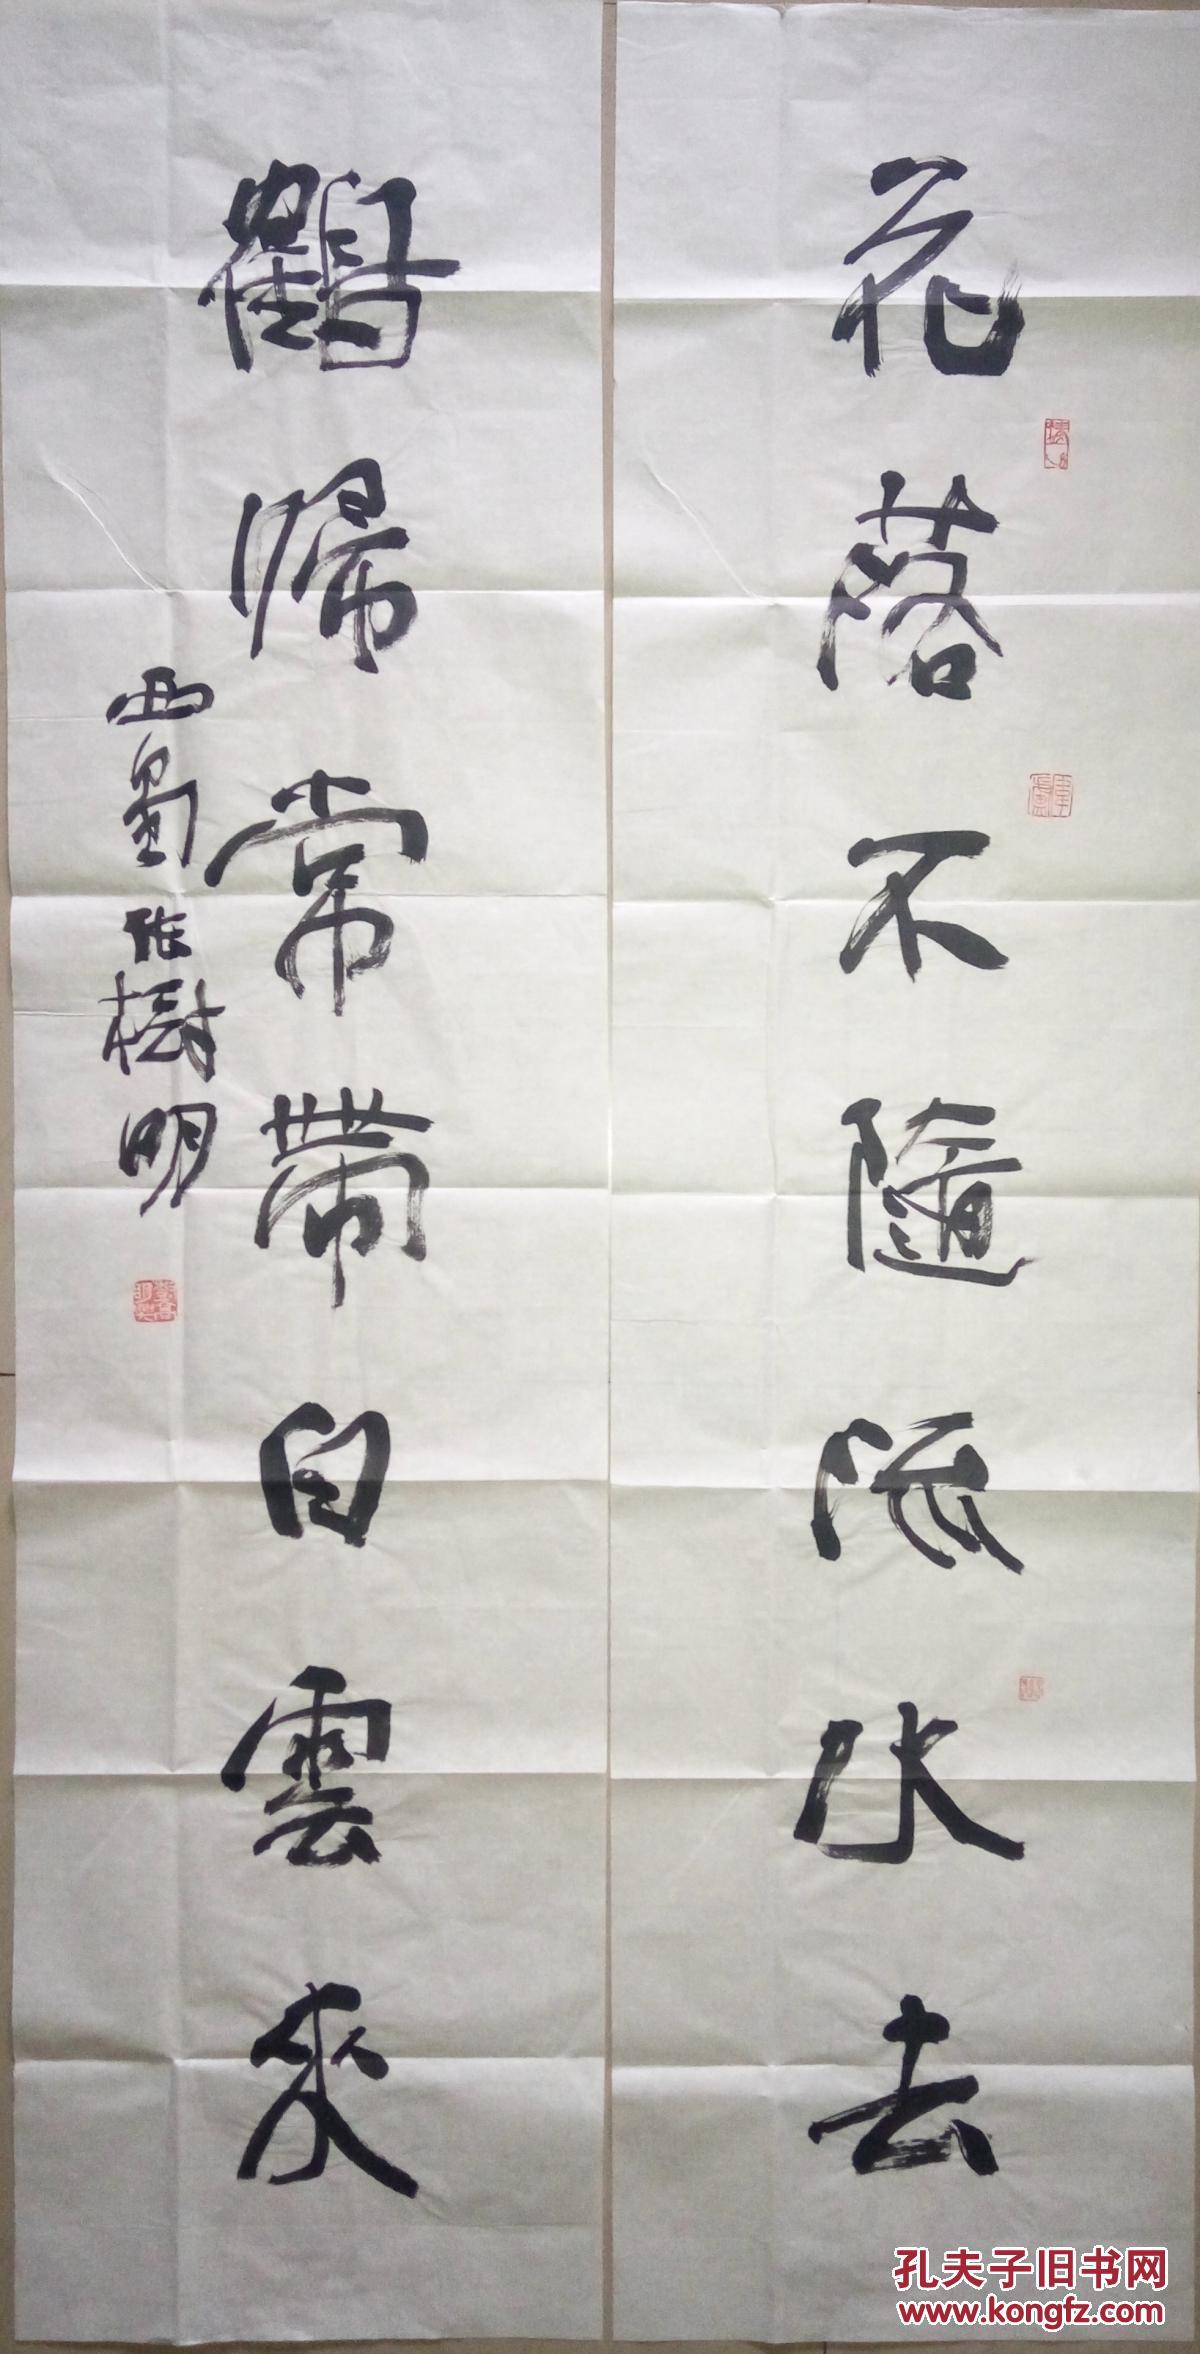 花落不隨流水去
鶴歸常帶白雲來
西蜀張樹明
孔夫子旧书网
www.kongfz.com